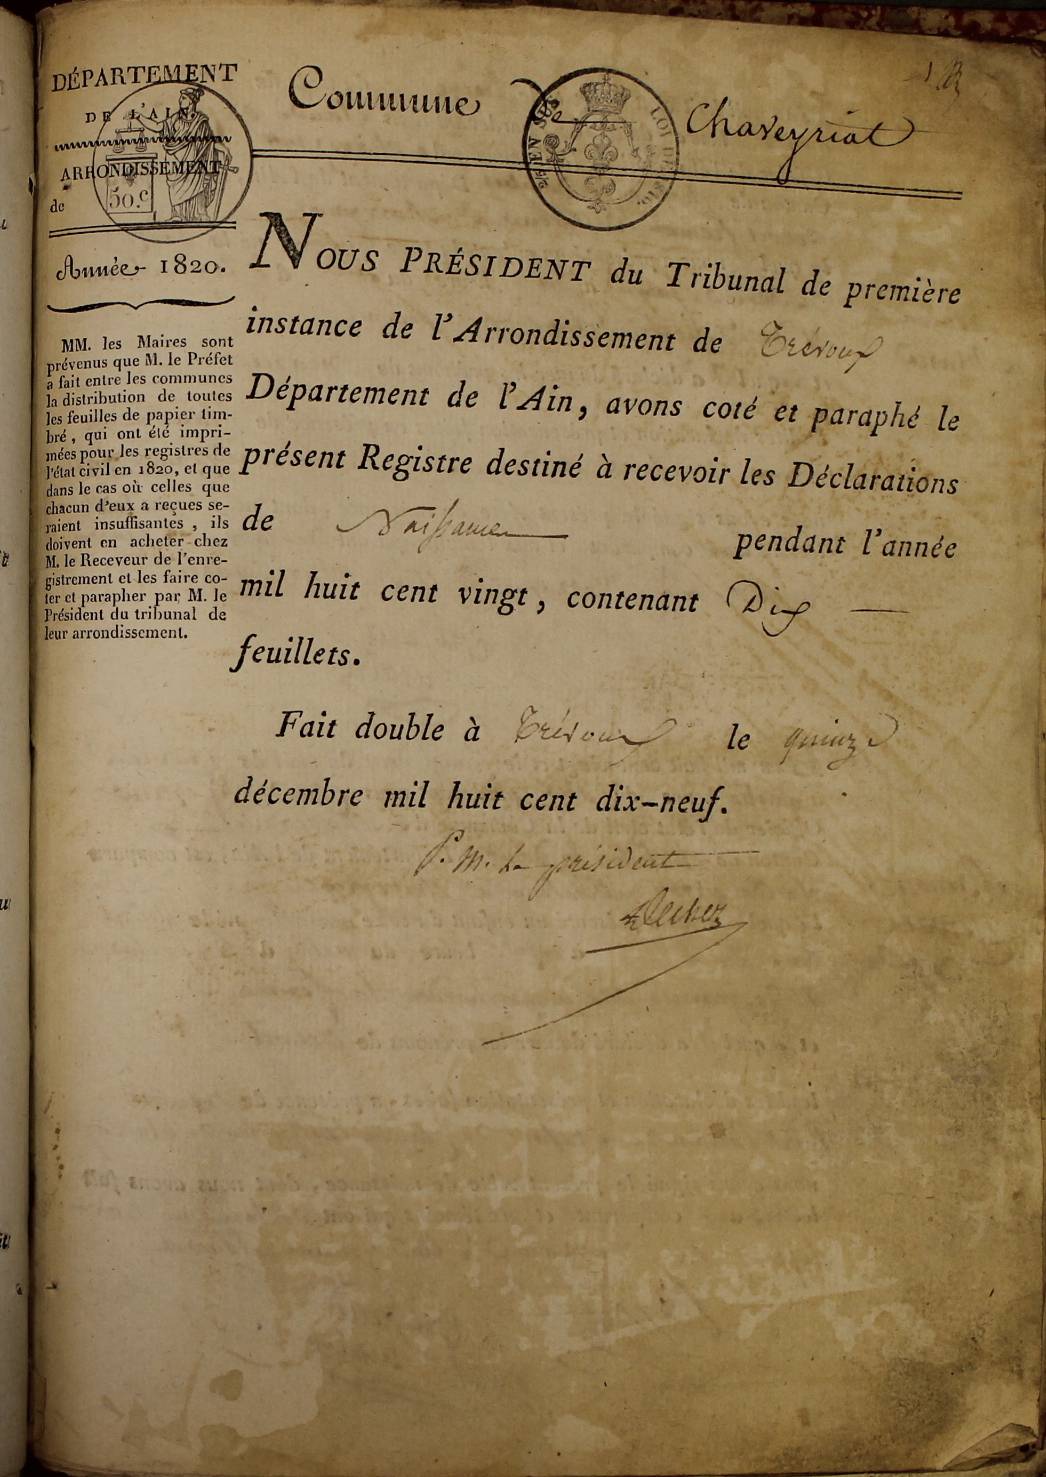 DÉPARTEMENT
DE L'AIN.
ARRONDISSEMENT
de
50.c
Commune de Chaveyriat
EN SUS
LOI DE
Année 1820.
MM. les Maires sont
prévenus que M. le Préfet
a fait entre les communes
la distribution de toutes
les feuilles de papier tim-
bré, qui ont été impri-
mées pour les registres de
l'état civil en 1820, et que
dans le cas où celles que
chacun d'eux a reçues se-
raient insuffisantes, ils
doivent en acheter chez
M. le Receveur de l'enre-
gistrement et les faire co-
ter et parapher par M. le
Président du tribunal de
leur arrondissement.
NOUS PRÉSIDENT du Tribunal de première
instance de l'Arrondissement de Trévoux
Département de l'Ain, avons coté et paraphé le
présent Registre destiné à recevoir les Déclarations
de Naissances pendant l'année
mil huit cent vingt, contenant Dix —
feuillets.
Fait double à Trévoux le quinze
décembre mil huit cent dix-neuf.
P. M. Le président